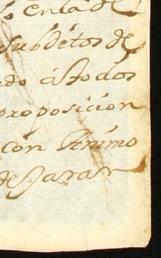 en la de
Subditos de
do á todos
proposicion
con Animo
de Sarar